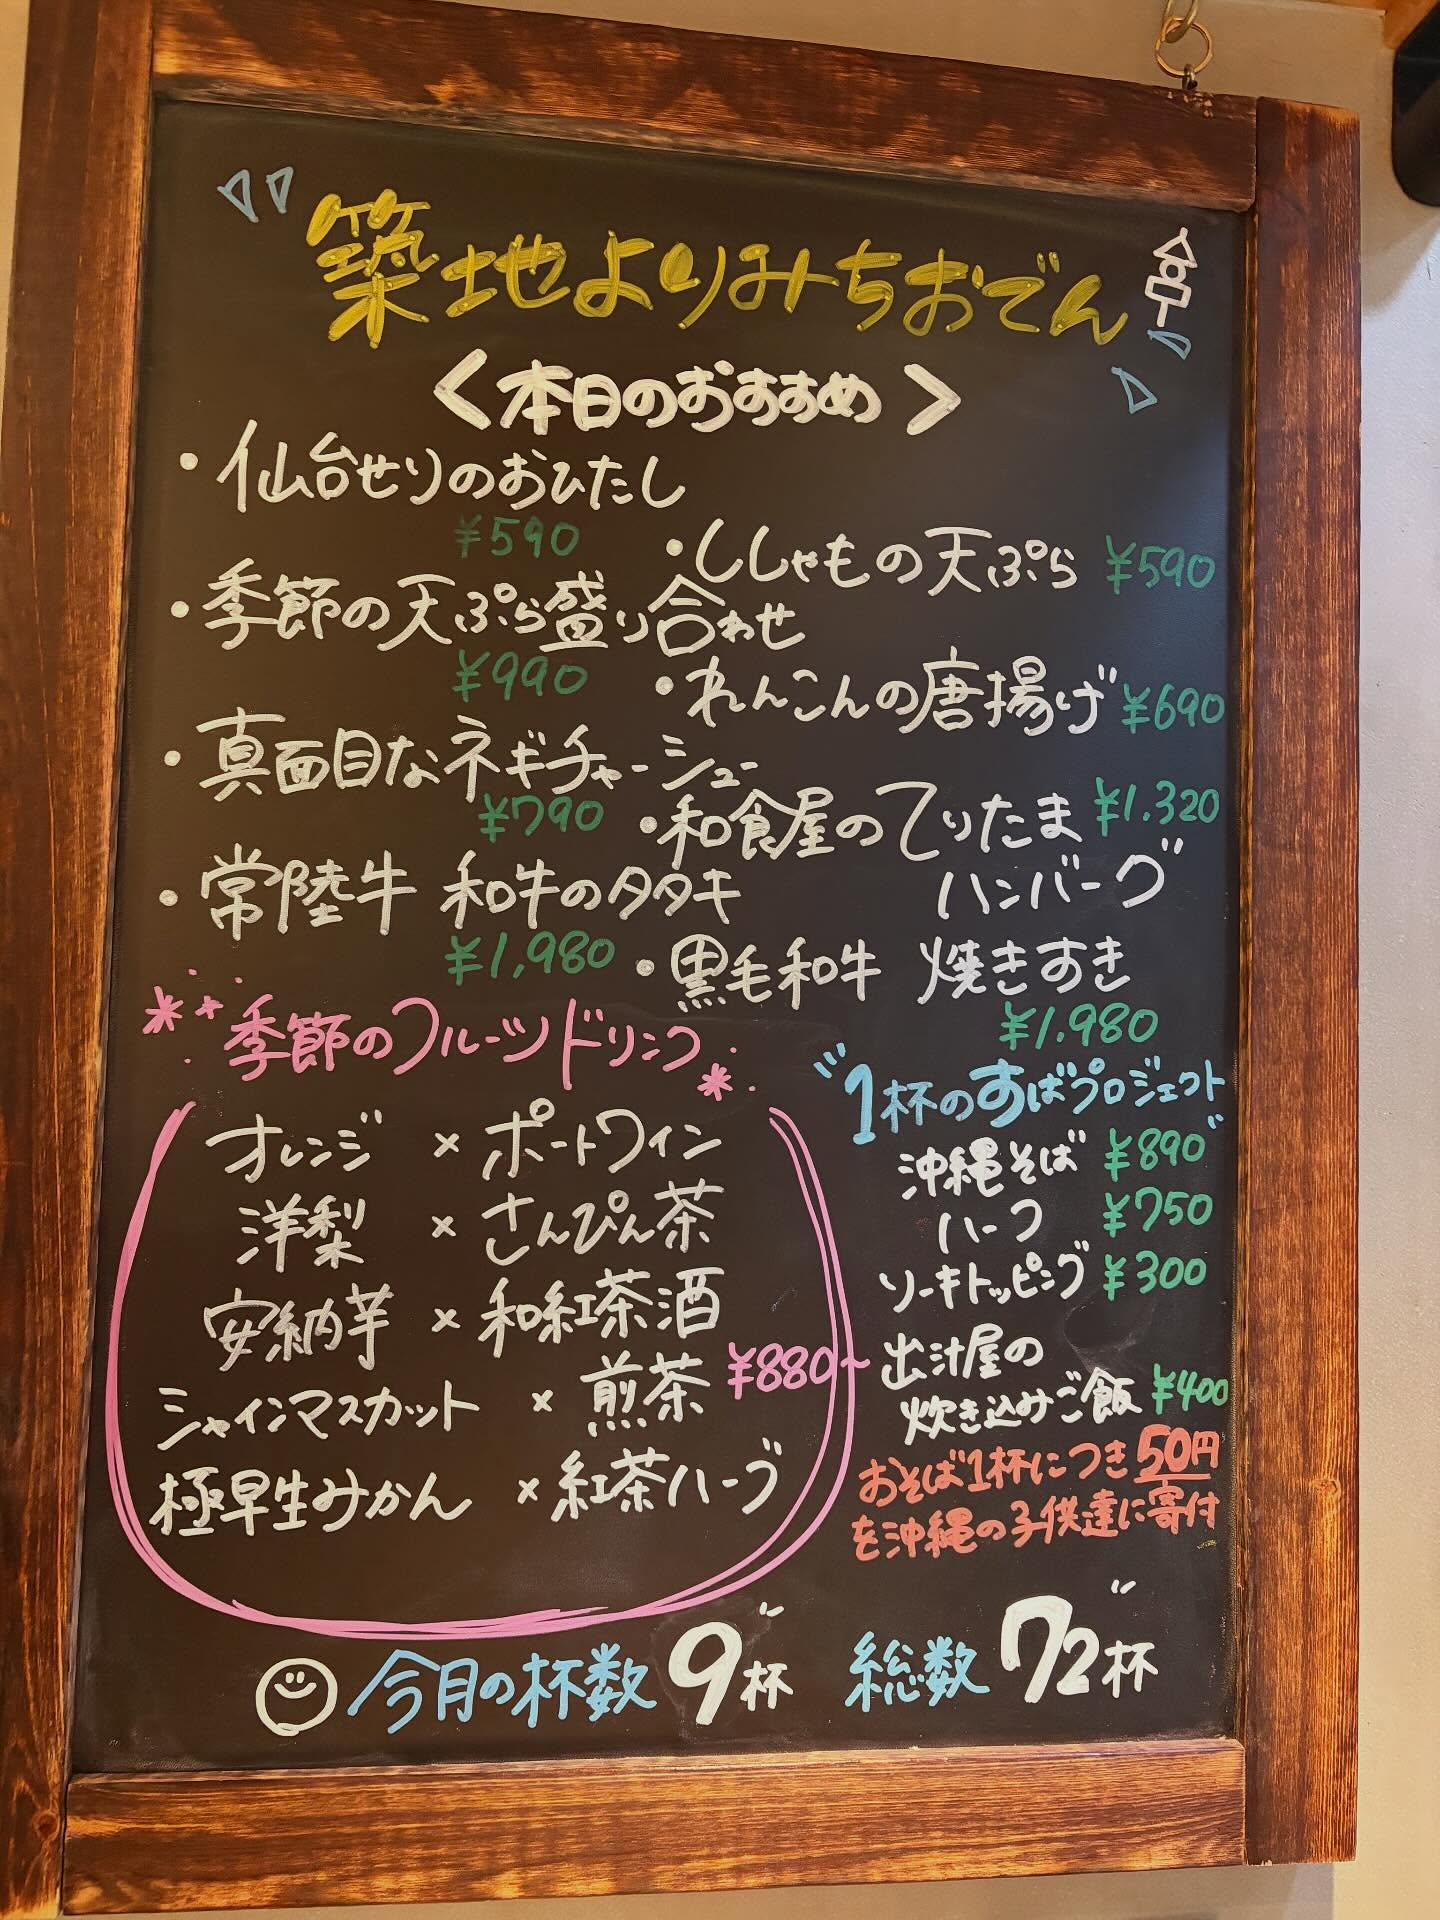 築地よりみちおでん
＜本日のおすすめ＞
・仙台せりのおひたし
¥590
・ししゃもの天ぷら ¥590
・季節の天ぷら盛り合わせ
¥990
・れんこんの唐揚げ ¥690
・真面目なネギチャーシュー
¥790
・和食屋のてりたま ¥1.320
ハンバーグ
・常陸牛 和牛のタタキ
¥1,980
・黒毛和牛 焼きすき
¥1.980
季節のフルーツドリンク
オレンジ × ポートワイン
洋梨 × さんぴん茶
安納芋 × 和紅茶酒
シャインマスカット × 煎茶
極早生みかん × 紅茶ハーブ
¥880~
"1杯のすばプロジェクト"
沖縄そば ¥890
ハーフ ¥750
ソーキトッピング ¥300
出汁屋の
炊き込みご飯 ¥400
おそば1杯につき50円
を沖縄の子供達に寄付
今月の杯数 9杯 総数 72杯